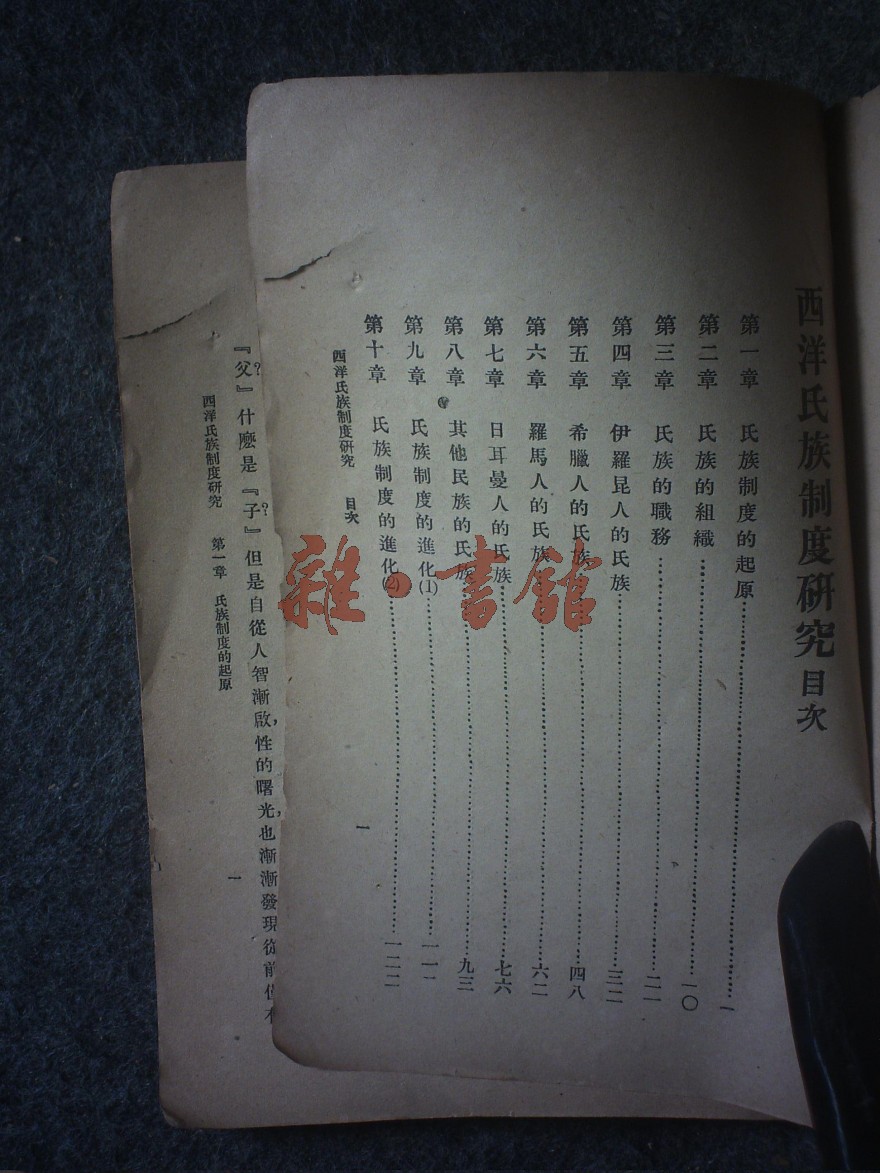 西洋氏族制度研究目次
第一章　氏族制度的起原………一
第二章　氏族的組織………一〇
第三章　氏族的職務………二一
第四章　伊羅昆人的氏族………三二
第五章　希臘人的氏族………四八
第六章　羅馬人的氏族………六二
第七章　日耳曼人的氏族………七六
第八章　其他民族的氏族………九三
第九章　氏族制度的進化(1)………一一一
第十章　氏族制度的進化(2)………一二二
西洋氏族制度研究　目次　一
『父』？什麼是『子』？但是自從人智漸啟，性的曙光，也漸漸發現從前
西洋氏族制度研究　第一章　氏族制度的起原　一
雜·書館